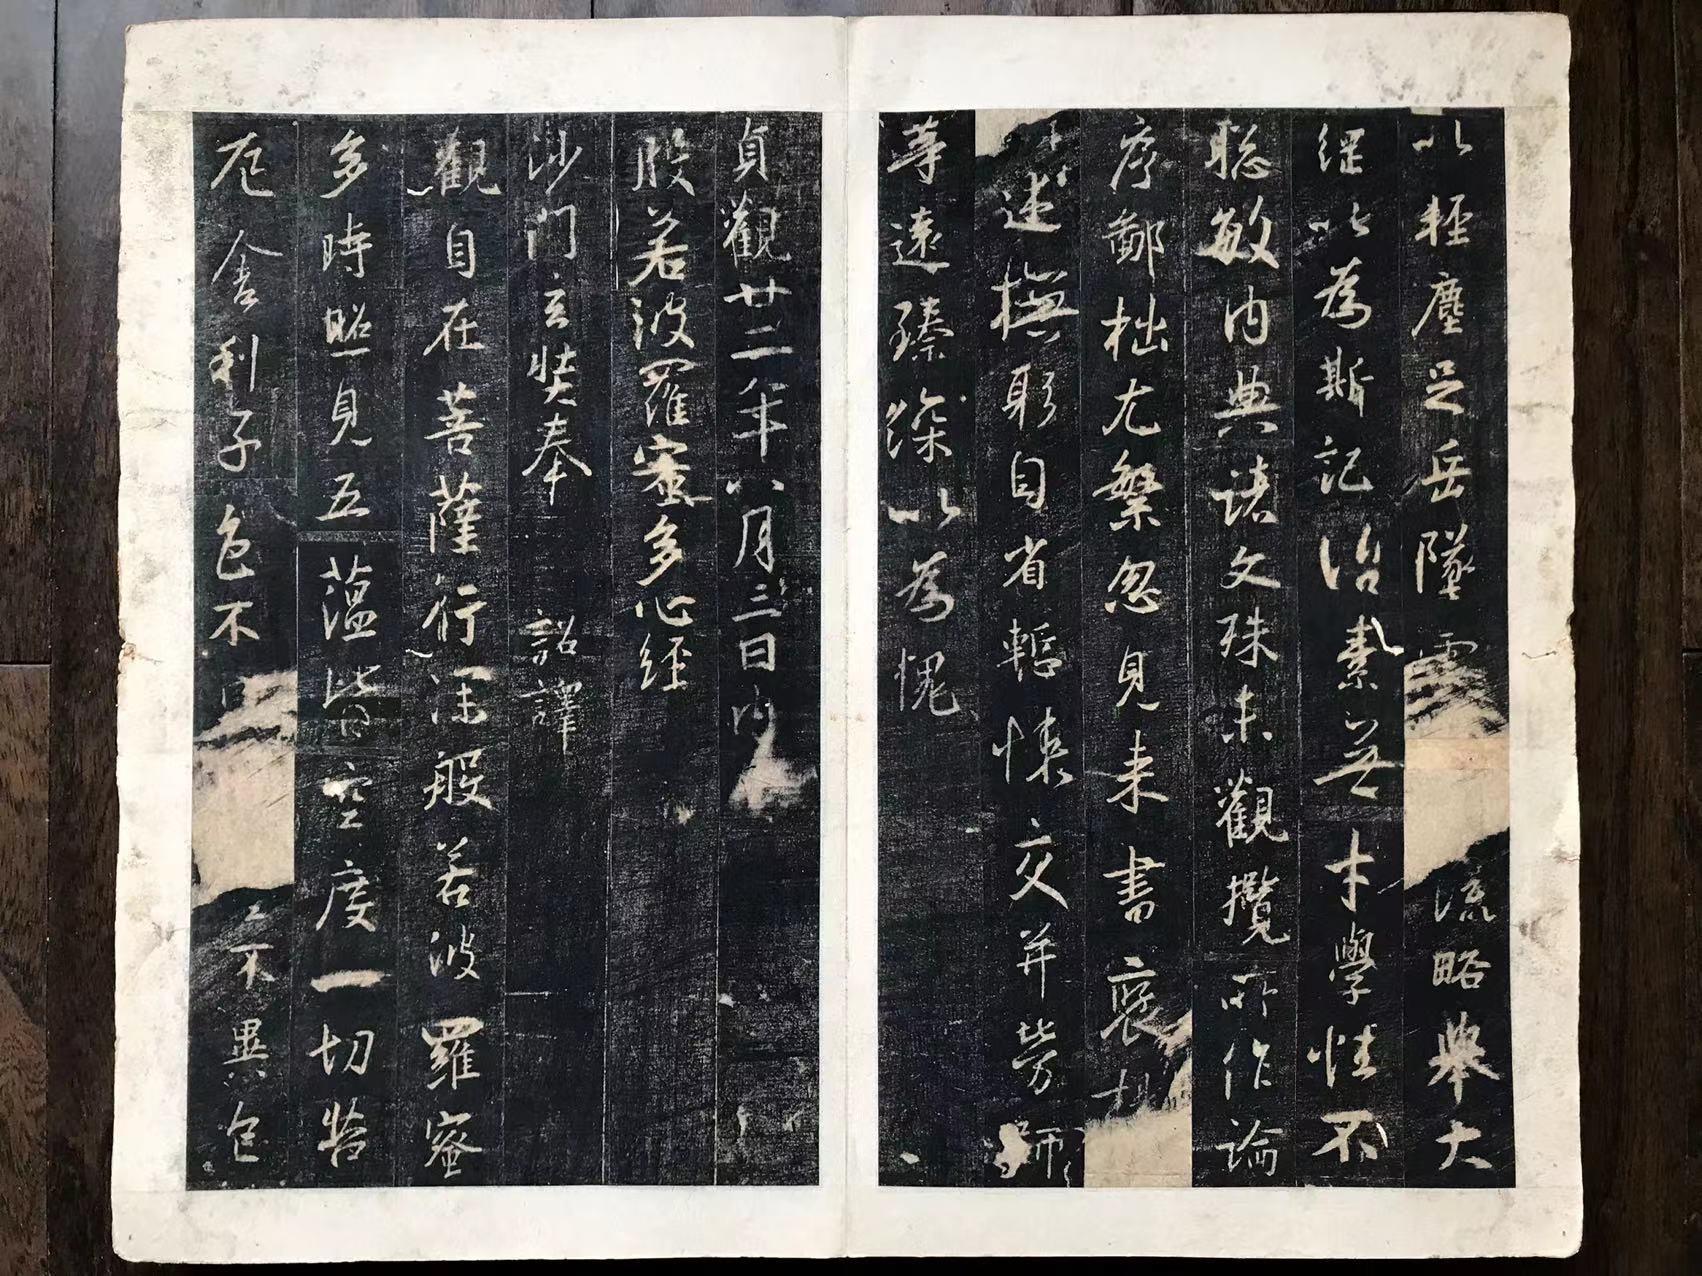 以輕塵足岳墜露流略舉大
綱以為斯記治素無才學性不
聰敏內典諸文殊未觀攬所作論
序鄙拙尤繁忽見來書褒
述撫躬自省慙悚交并勞師
等遠臻深以為愧
貞觀廿二年八月三日內
般若波羅蜜多心經
沙門玄奘奉 詔譯
觀自在菩薩行深般若波羅蜜
多時照見五蘊皆空度一切苦
厄舍利子色不不異色